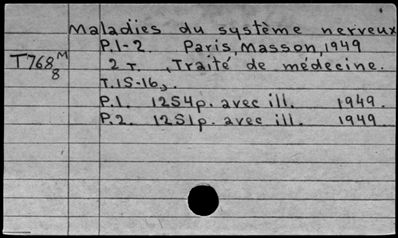 Maladies du système nerveux
P.1-2. Paris, Masson, 1949
T768 M 2 т. , Traité de médecine.
8
T.15-16,.
P.1. 1254p. avec ill. 1949.
P.2. 1251p. avec ill. 1949.